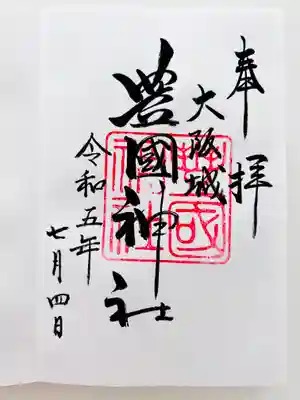 奉拝
大阪城
豊國神社
令和五年
七月四日
豊國神社